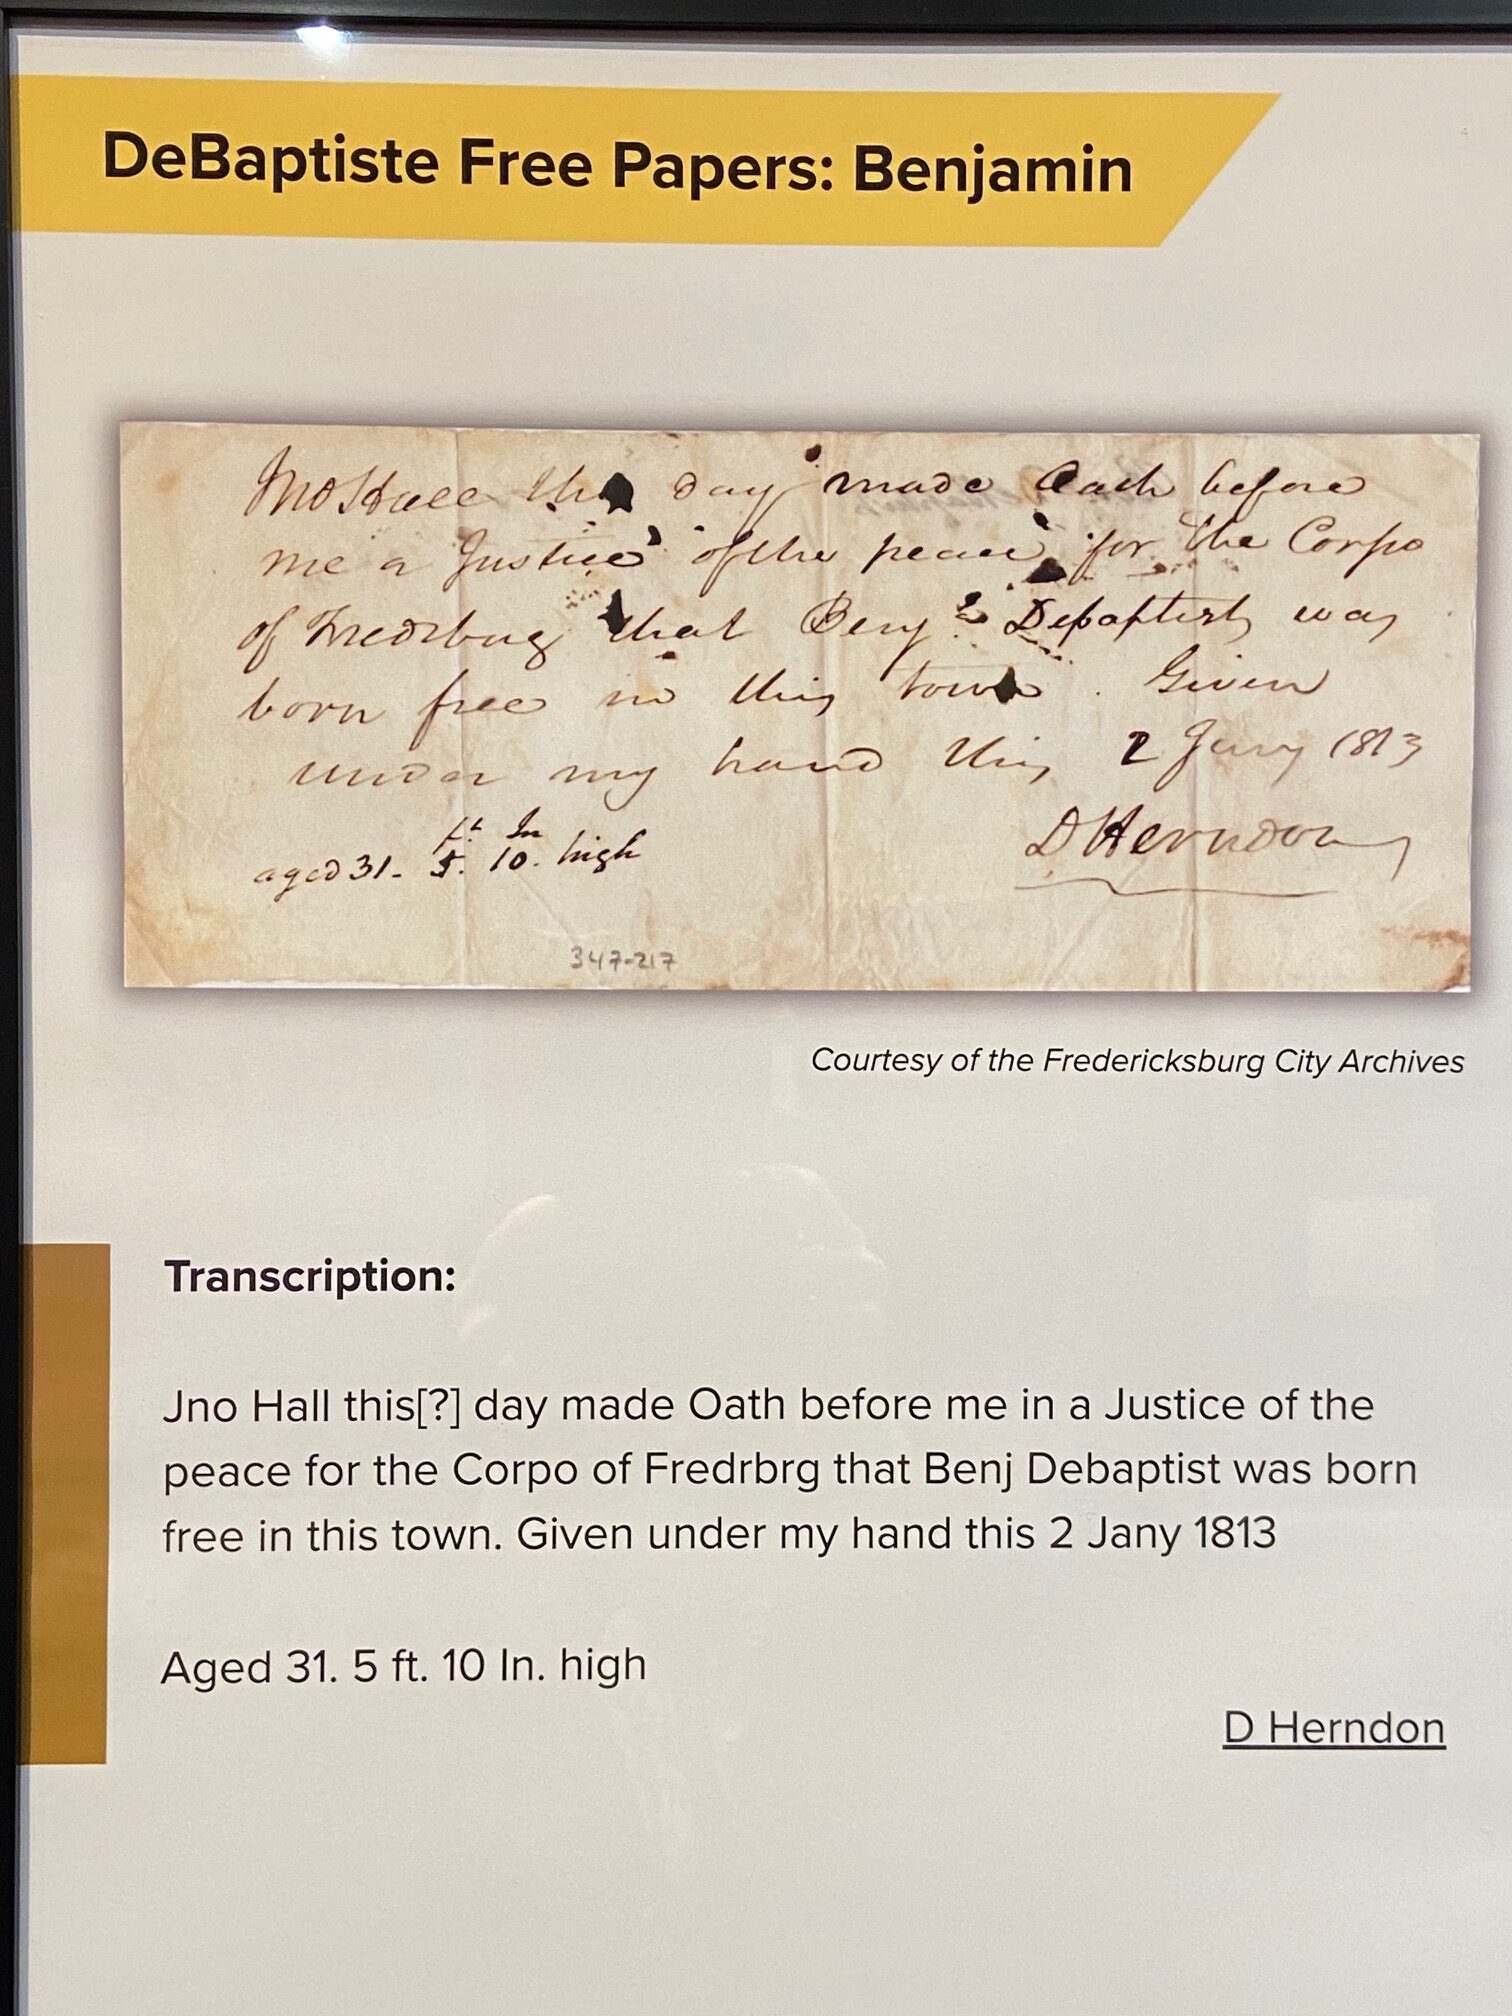 DeBaptiste Free Papers: Benjamin
Jno Hall this day made Oath before
me a Justice of the peace for the Corpo
of Fredrbug that Benj Debaptist was
born free in this town. Given
under my hand this 2 Jany 1813
ft. In
aged 31. 5. 10. high
D Herndon
347-217
Courtesy of the Fredericksburg City Archives
Transcription:
Jno Hall this[?] day made Oath before me in a Justice of the
peace for the Corpo of Fredrbrg that Benj Debaptist was born
free in this town. Given under my hand this 2 Jany 1813
Aged 31. 5 ft. 10 In. high
D Herndon